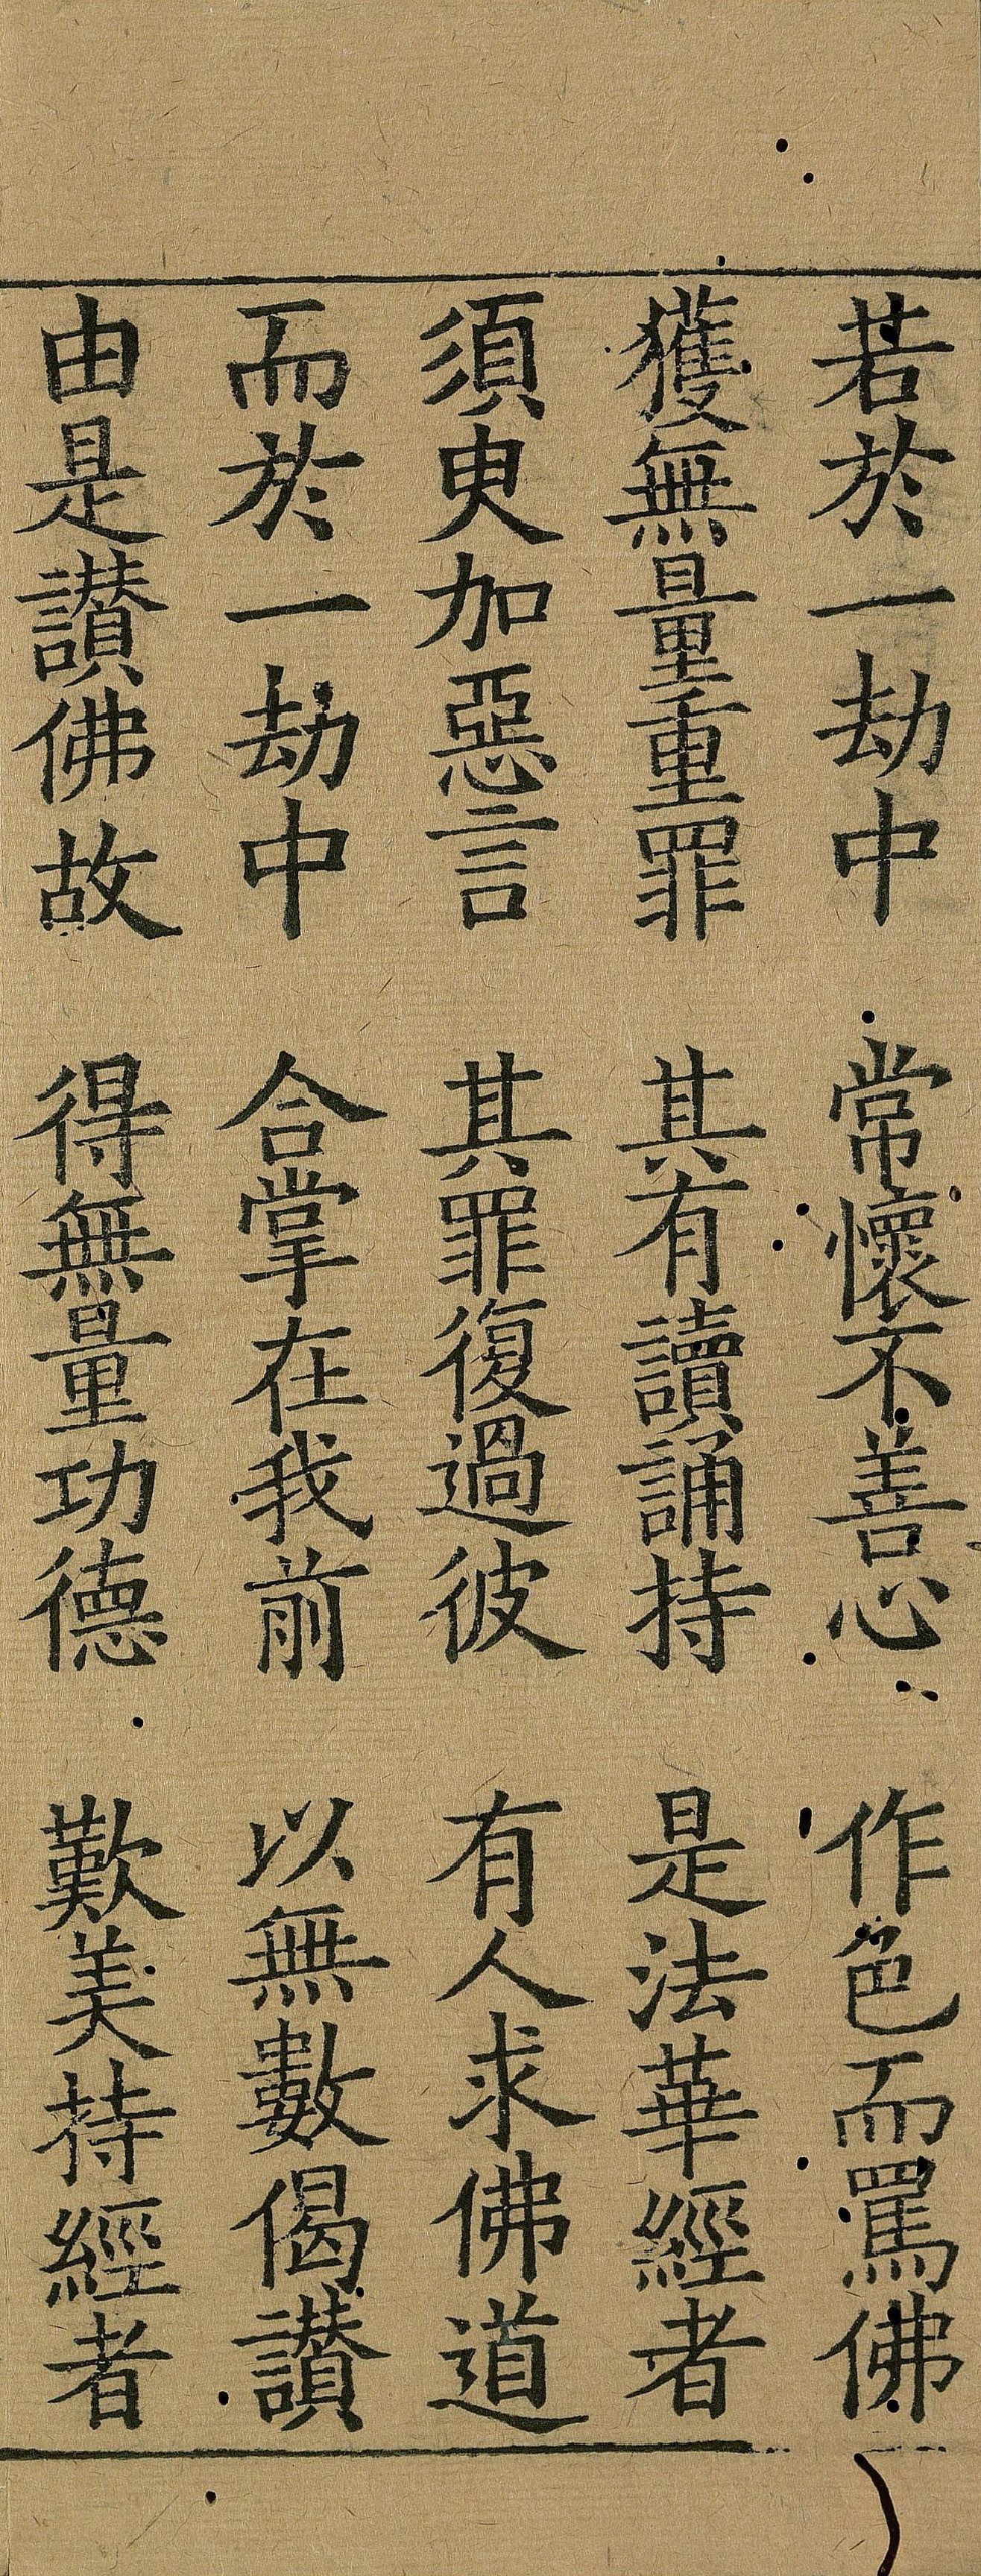 若於一劫中　常懷不善心　作色而罵佛
獲無量重罪　其有讀誦持　是法華經者
須臾加惡言　其罪復過彼　有人求佛道
而於一劫中　合掌在我前　以無數偈讃
由是讃佛故　得無量功德　歎美持經者